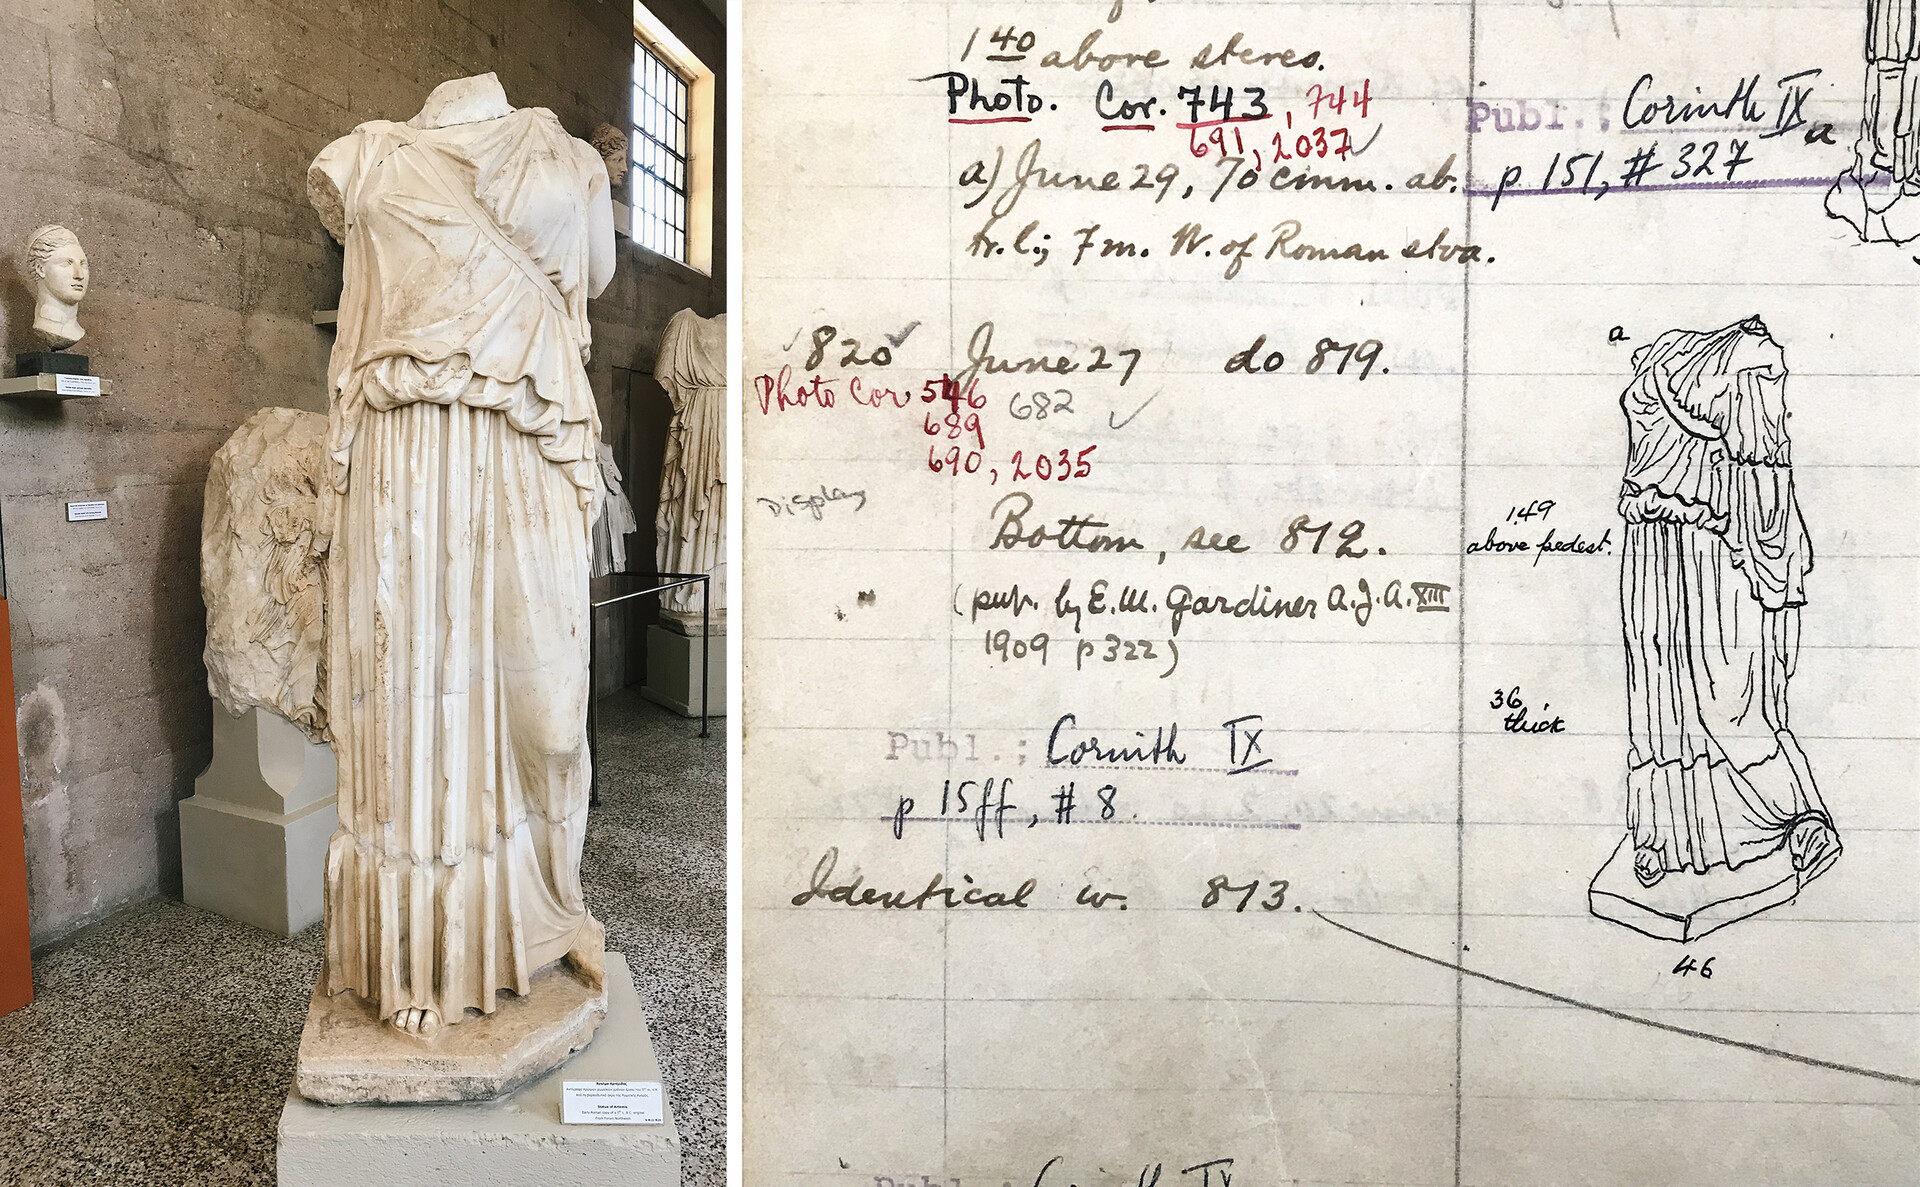 Άγαλμα Αρτέμιδας
Statue of Artemis
Early Roman copy of a 4th c. B.C. original
From Forum Northwest
1 40 above stereo.
Photo. Cor. 743, 744
691, 2037 ✓
a) June 29, 70 cmm. ab.
tr. l.; 7 m. W. of Roman stoa.
Publ.; Corinth IX
p 151, # 327
a
✓ 820 ✓ June 27 do 819.
Photo Cor 546 682 ✓
689
690, 2035
Display
Bottom, see 812.
(pub. by E.M. Gardiner A.J.A. XIII
1909 p 322)
Publ.; Corinth IX
p 15ff, # 8.
Identical w. 813.
a
1.49
above pedest.
36
thick
46
Publ.; Corinth IX